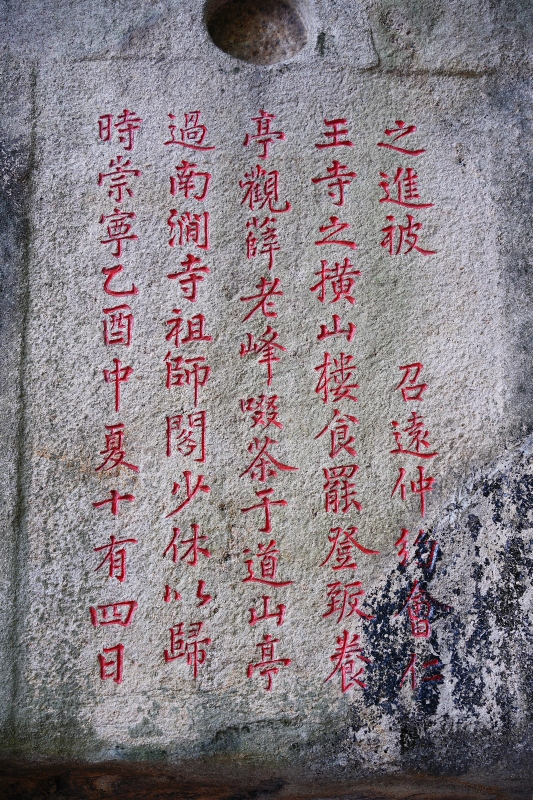 之進被 召遠仲約會仁
王寺之横山楼食罷登皈養
亭觀薛老峰啜茶于道山亭
過南澗寺祖師閣少休以歸
時崇寧乙酉中夏十有四日